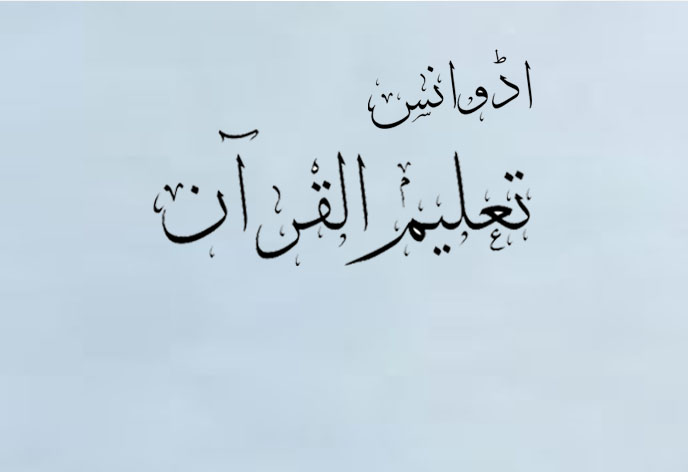 اڈوانس
تعلیم القرآن